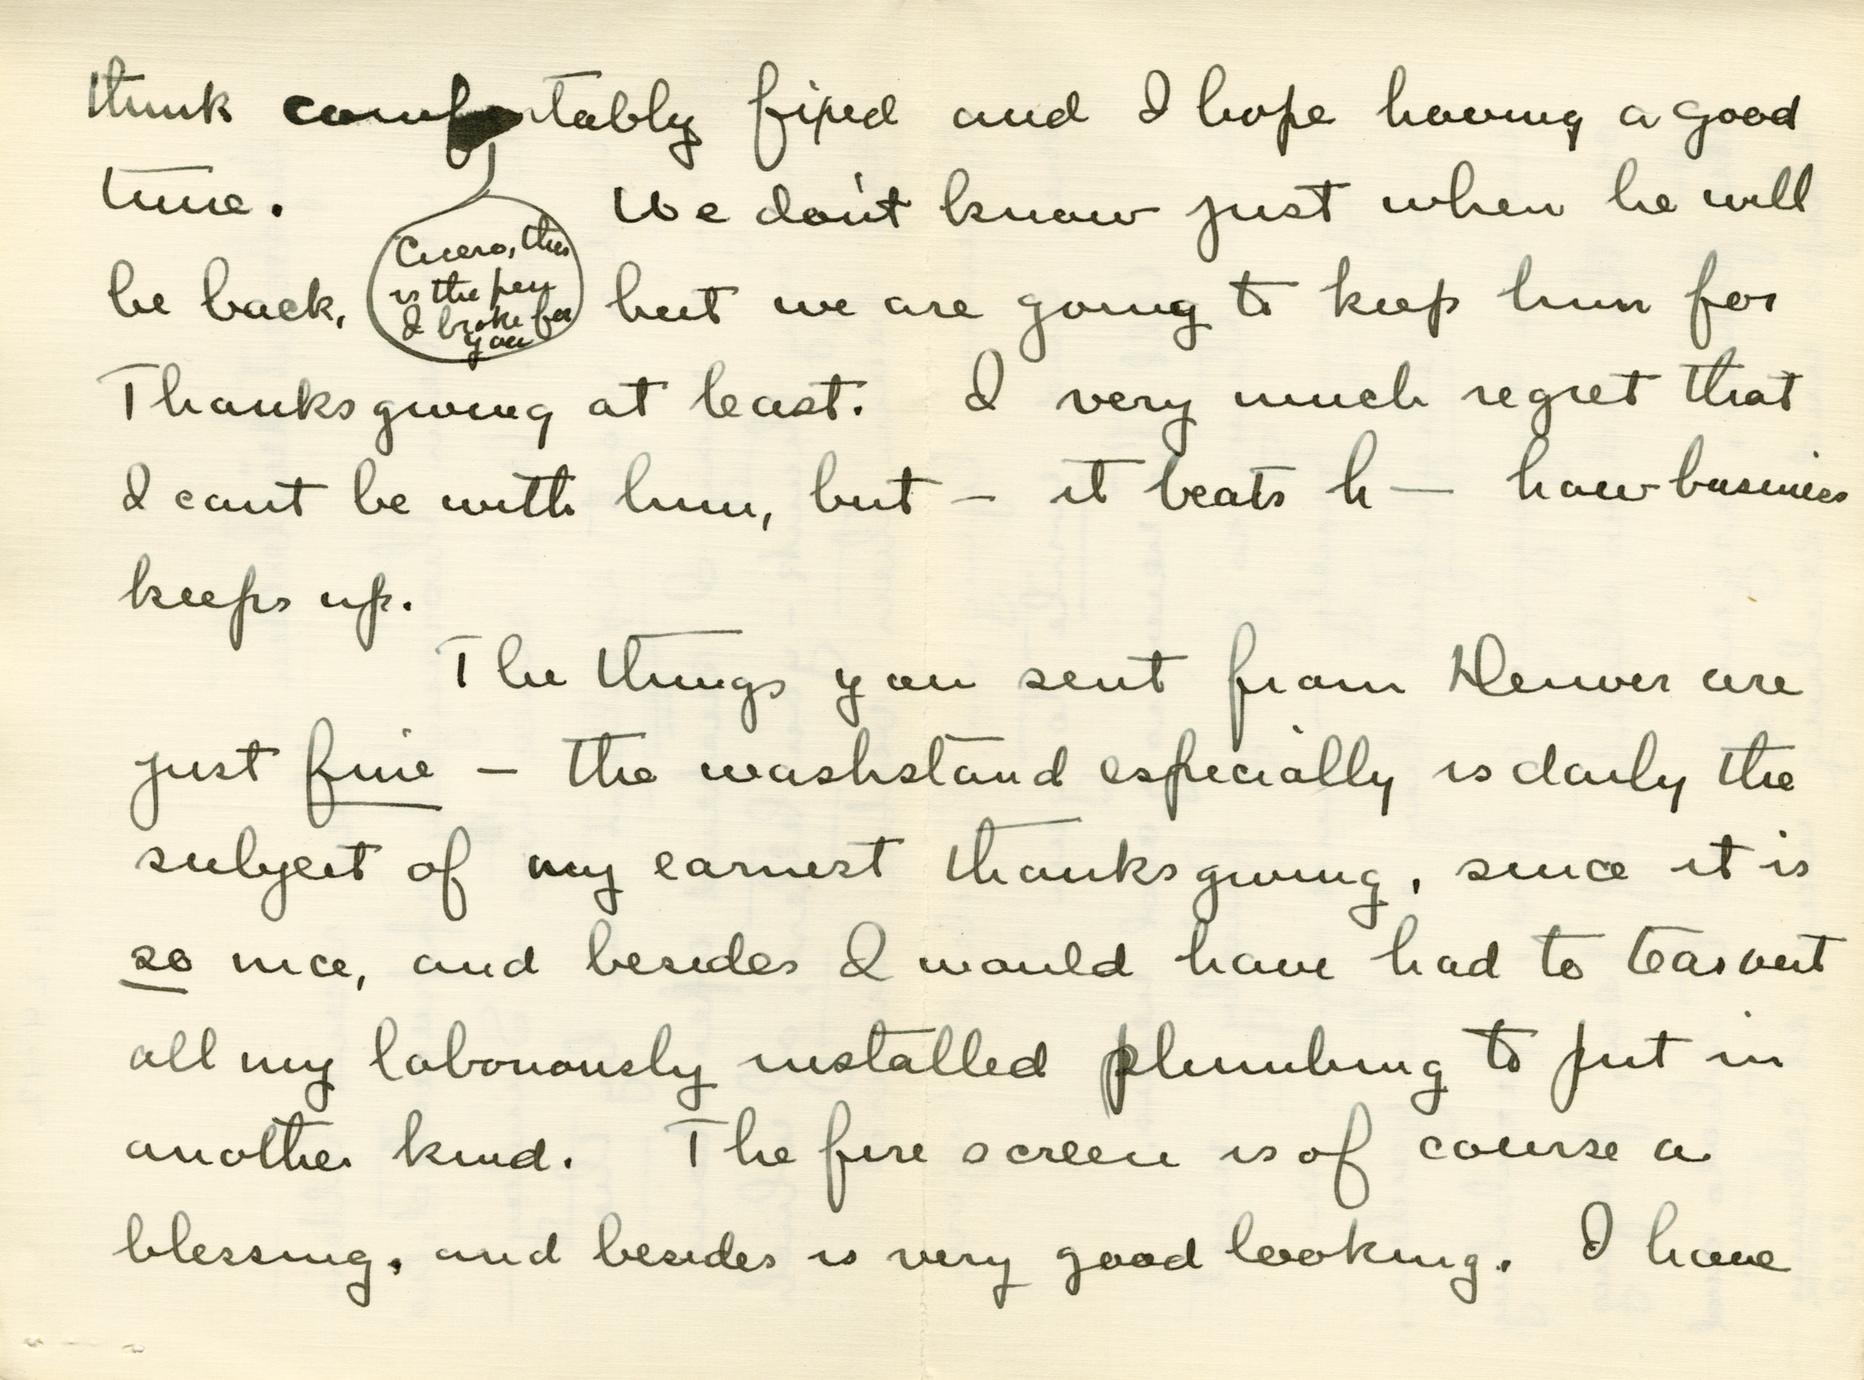 think comfortably fixed and I hope having a good
time. We don't know just when he will
be back, but we are going to keep him for
Cicero, this
is the pen
I broke for
you
Thanksgiving at least. I very much regret that
I cant be with him, but – it beats h— how business
keeps up.
The things you sent from Denver are
just fine – the washstand especially is daily the
subject of my earnest thanksgiving, since it is
so nice, and besides I would have had to tear out
all my laboriously installed plumbing to put in
another kind. The fire screen is of course a
blessing, and besides is very good looking. I have